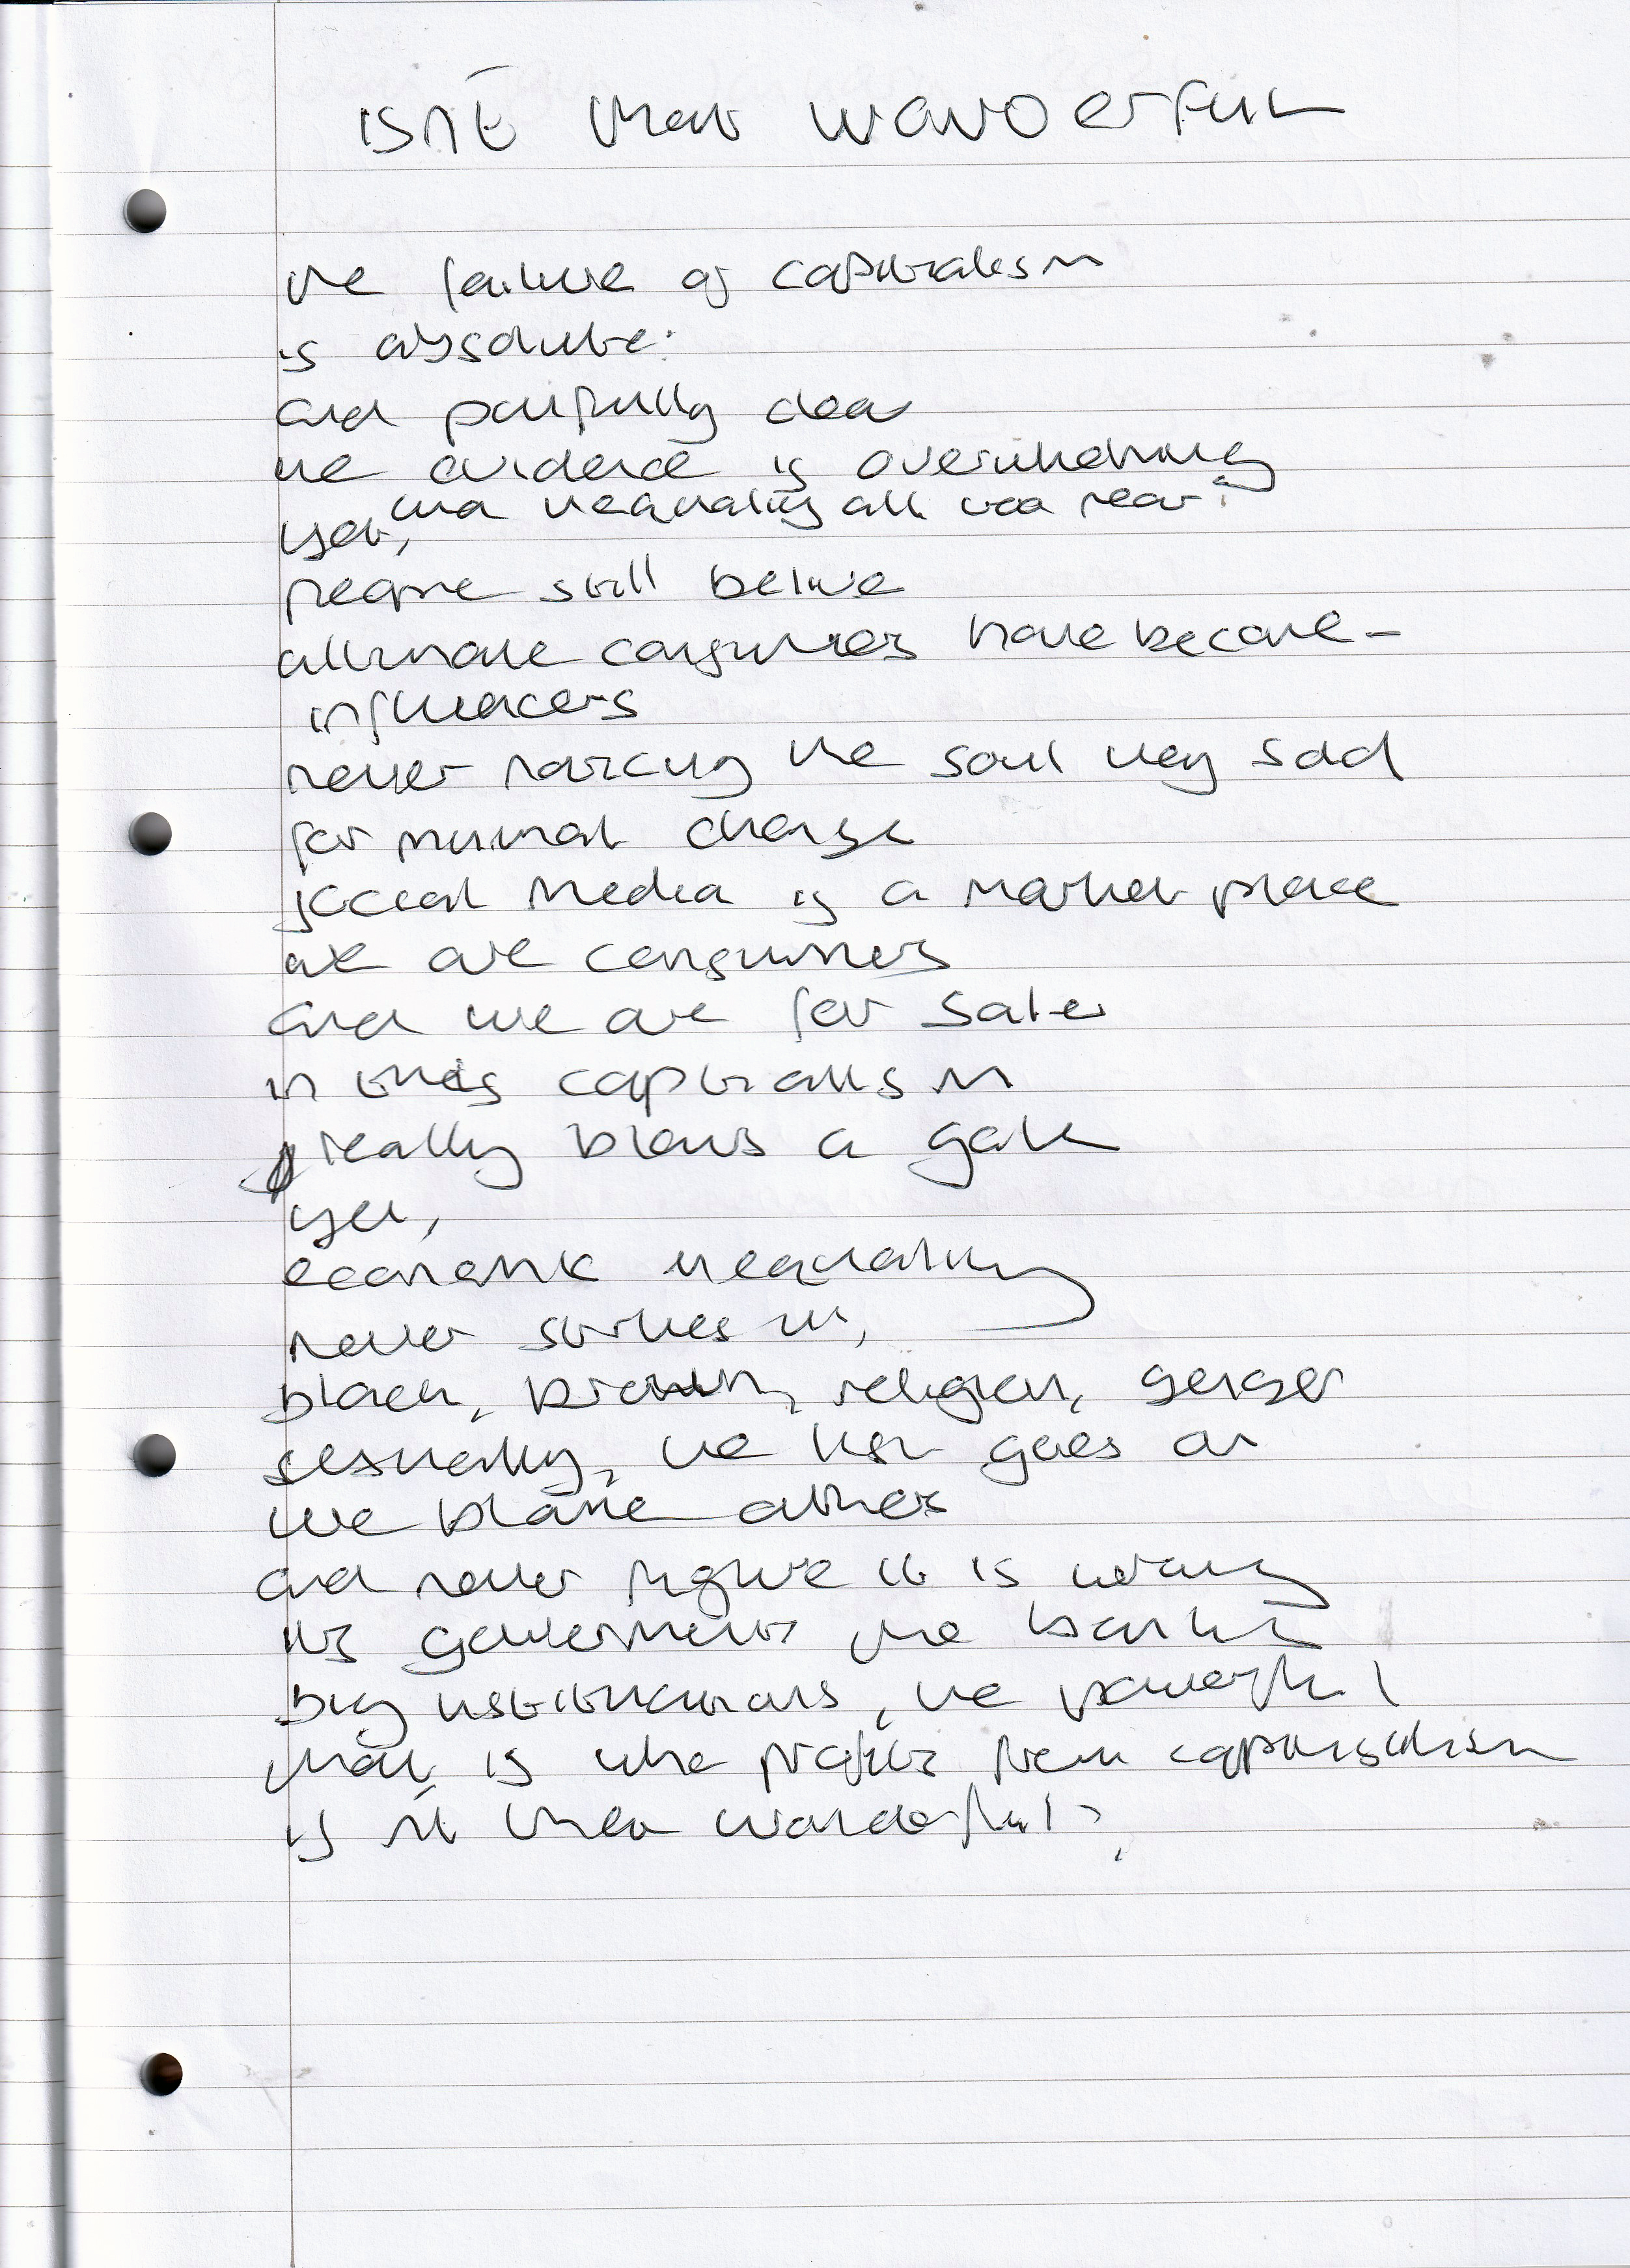 isn't that wonderful
the failure of capitalism
is absolute:
and painfully clear
the evidence is overwhelming
and inequality all too real.
yet,
people still belive
ultimate consumers have become -
influencers
never noticing the soul they sold
for minimal change
social media is a market place
we are consumers
and we are for sale
in this capitalism
really blows a gale
yet,
economic inequality
never strikes us,
black, brown, religion, gender
sexuality, the list goes on
we blame others
and never figure it is wrong
its governments the banks
big institutions, the powerful
that is who profits from capitalism
is n't that wonderful?